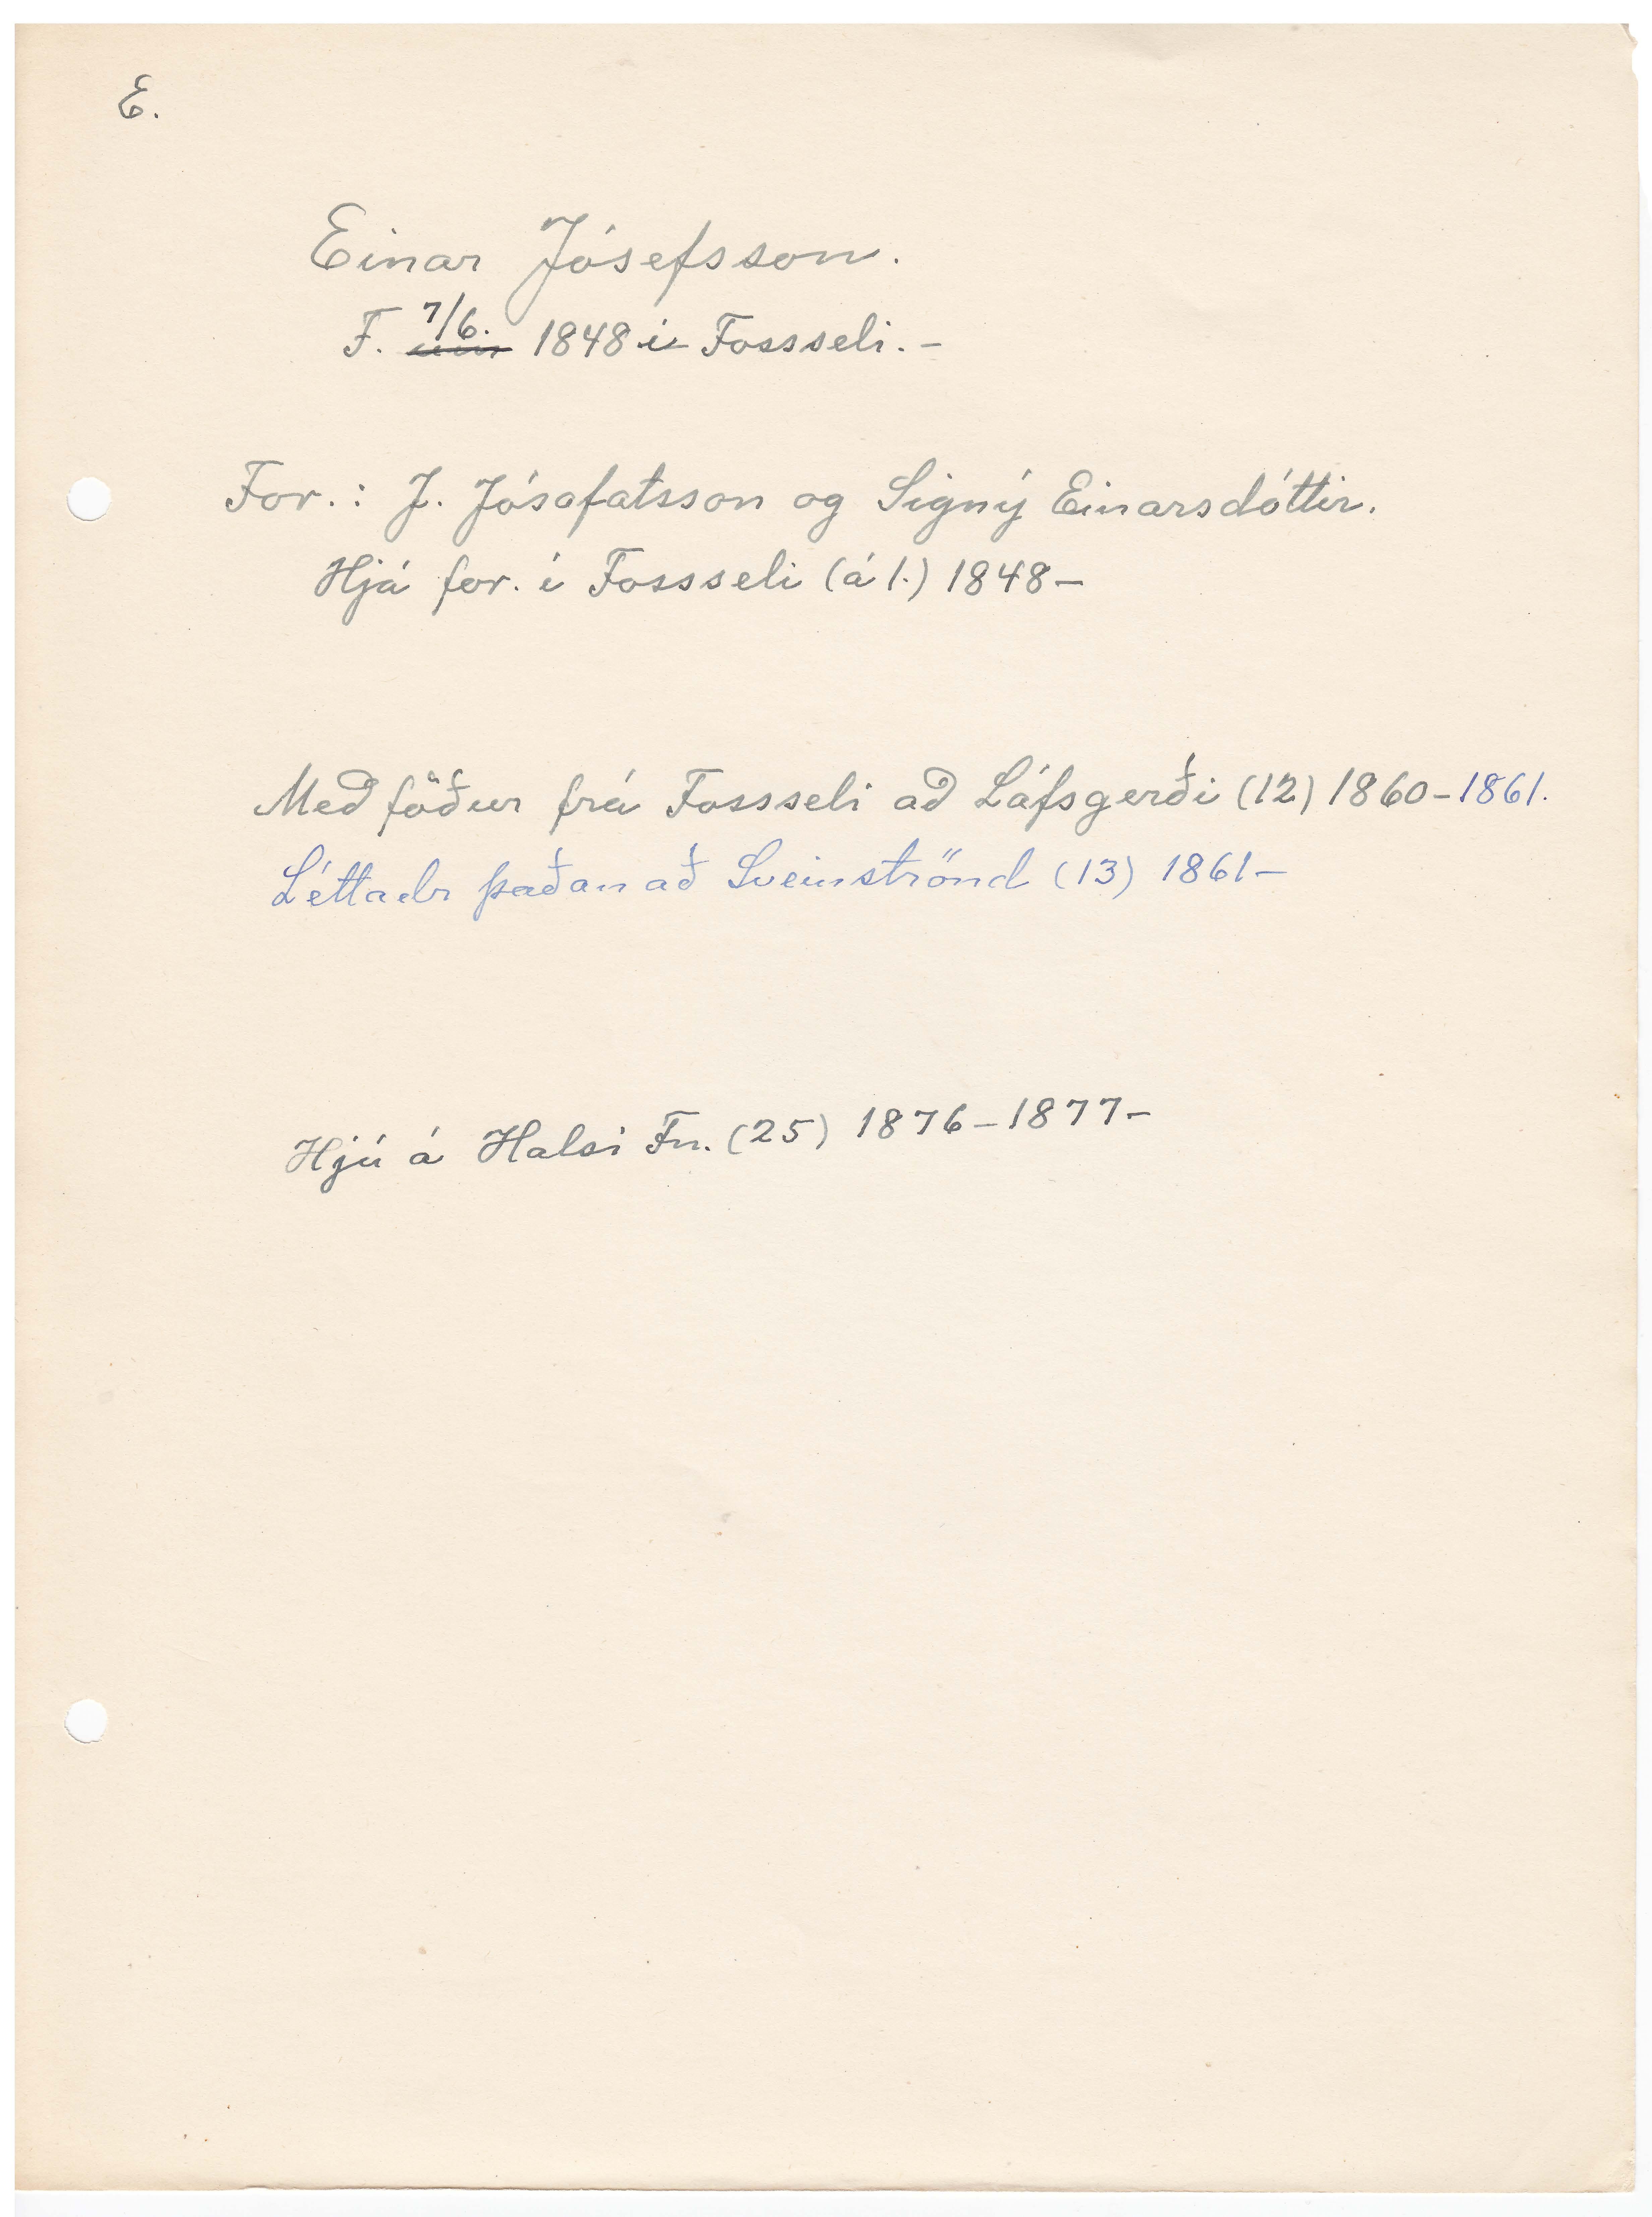 E.
Einar Jósefsson.
F. 7/6. 1848 í Fossseli. -
For.: J. Jósafatsson og Signý Einarsdóttir.
Hjá for. í Fossseli (á 1.) 1848-
Með föður frá Fossseli að Láfsgerði (12) 1860-1861.
Léttadr þaðan að Sveinströnd (13) 1861-
Hjú á Halsi Fn. (25) 1876-1877-